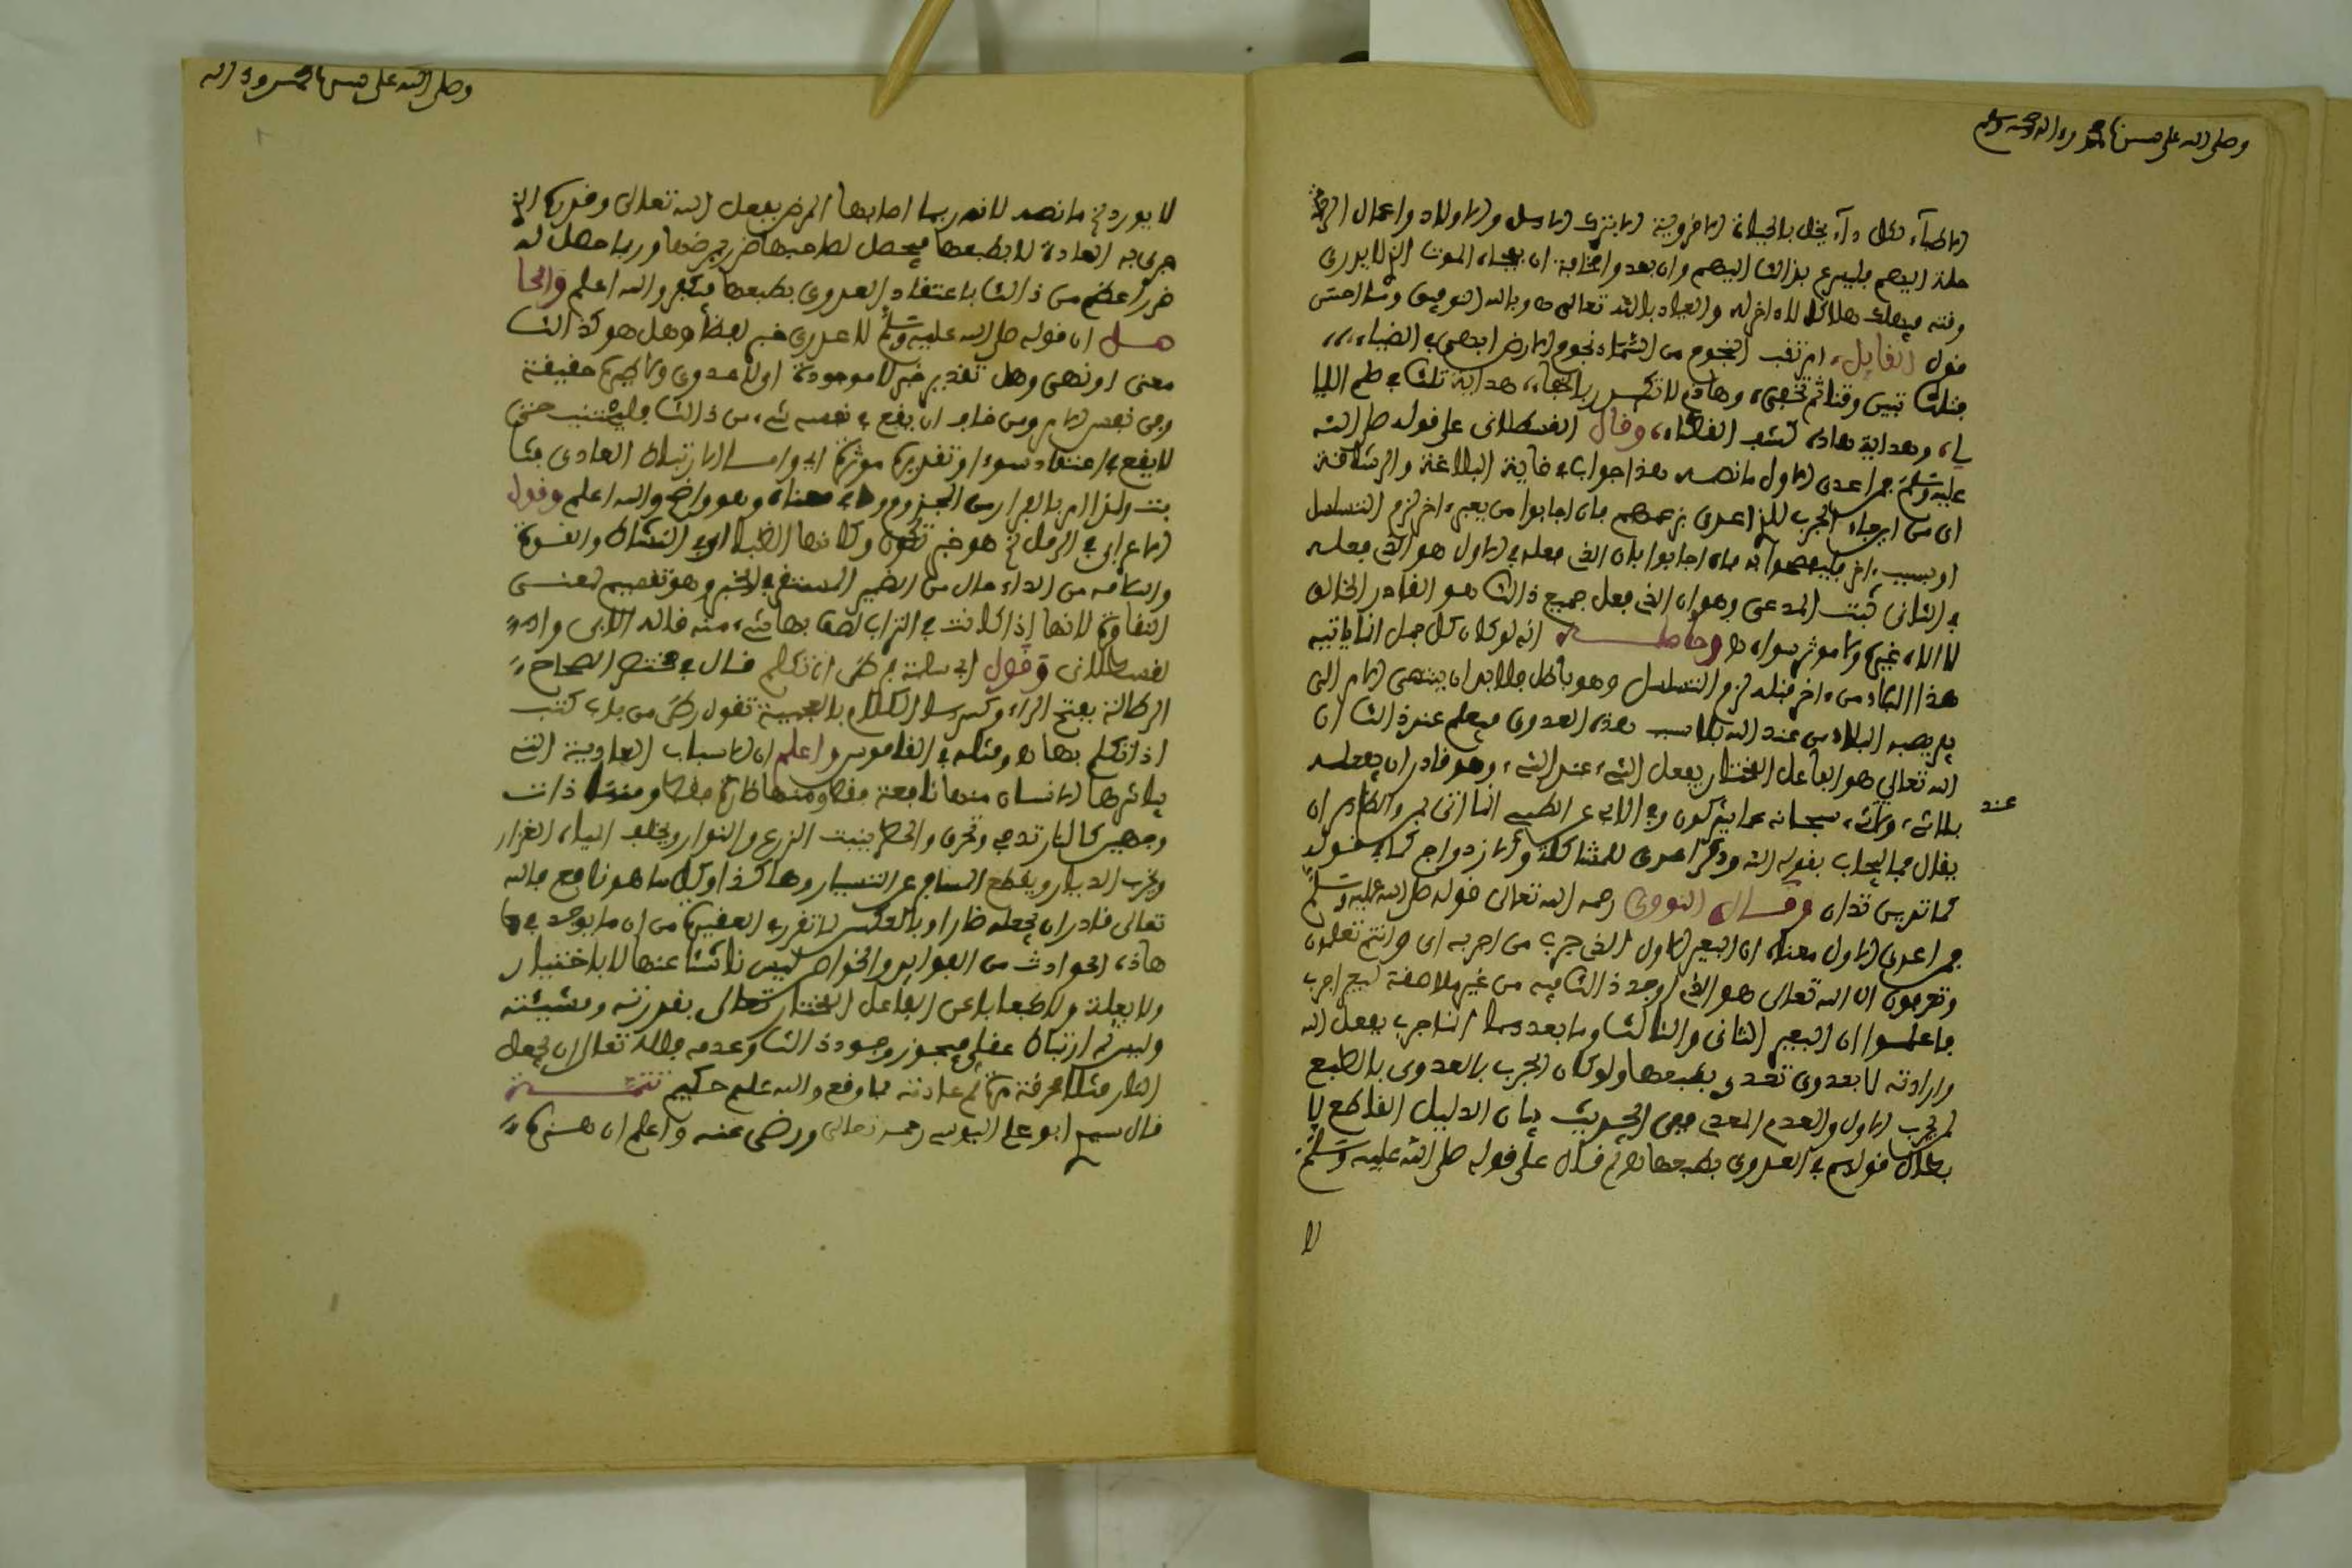 وصلى الله على سيدنا محمد وءاله وصحبه وسلم
وقته فيهلك هلاكا لا ءاخر له والعياذ بالله تعالى وبالله التوفيق
قول القايل، ارتقب النجوم من السماء نجوم الارض ابهى في الضياء،،،
فتلك تبين وقتا ثم تخفى، وهاذي لا تكدر بالخفاء، هداية تلك في ظلم الليا
لي، وهداية هاذه كشف الغطاء، وقال القسطلاني على قوله صلى الله
عليه وسلم فمن اعدى الاول ما نصه هذا جواب في غاية البلاغة والرشاقة
اى من اين جاء الجرب للذي اعدى بزعمهم فان اجابوا من بعير ءاخر لزم التسلسل
او بسبب ءاخر فليفصحوا به فان اجابوا بان الذي فعله في الاول هو الذي فعله
في الثاني ثبت المدعى وهو ان الذي فعل جميع ذالك هو القادر الخالق
لا الاه غيره ولا موثر سواه وحاصله انه لو كان كل جمل انما ياتيه
هذا الداء من ءاخر قبله لزم التسلسل وهو باطل فلا بد ان ينتهى الامر الى
بعير يصبه البلاء من عند الله بلا سبب هذه العدوى فيعلم عند ذالك ان
الله تعالى هو الفاعل المختار يفعل الشيء عند الشيء، وهو قادر ان يفعله
عند
بلا شيء، سبحانه عما يشركون وفي الابي عن الطيبي انما اتى بمن والظاهر ان
يقال فما بجاب بقوله الله وذكر اعدى للمشاكلة والازدواج كما في قوله
كما تدين تدان وقال النووى رحمه الله تعالى قوله صلى الله عليه وسلم
فمن اعدى الاول معناه ان البعير الاول الذي جرب من اجربه اى وانتم تعلمون
وتعترفون ان الله تعالى هو الذي اوجد ذالك فيه من غير ملاصقة لبعير اجرب
فاعلموا ان البعير الثاني والثالث وما بعدهما انما جرب بفعل الله
وارادته لا بعدوى تعدى بطبعها ولو كان الجرب بالعدوى بالطبع
لم يجرب الاول والعدم المعدي ففي الحديث بيان الدليل القاطع لا
بطال قولهم في العدوى بطبعها ثم قال على قوله صلى الله عليه وسلم
لا
وصلى الله على سيدنا محمد وءاله
لا يورد الخ ما نصه لانه ربما اصابها المرض بفعل الله تعالى وقدره الذي
جرى به العادة لا بطبعها فيحصل لصاحبها ضرر بمرضها وربما حصل له
ضرر اعظم من ذالك باعتقاد العدوى بطبعها فيكفر والله اعلم والحا
صل ان قوله صلى الله عليه وسلم لا عدوى خبر لفظا وهل هو كذالك
معنى او نهى وهل تقدير خبر لا موجودة اولا عدوى ولا طيرة حقيقة
وفي نفس الامر ومن خاف ان يقع في نفسه شيء، من ذالك فليجتنب حتى
لا يقع في اعتقاد سوء او تقدير موثرة اى واما الارتباط العادى فثا
بت ولذا امر بالفرار من المجذوم وما في معناه وهو واضح والله اعلم وقول
الاعرابي في الرمل الخ هو خبر تكون وكانها الظباء اى في النشاط والقوة
والسلامة من الداء حال من الضمير المستتر في الخبر وهو تتميم لمعنى
النقاوة لانها اذا كانت في التراب لصق بها شيء، منه قاله الابي وا
لقسطلاني وقول ابي سلمة فرطن اى تكلم قال في مختصر الصحاح
الرطانة بفتح الراء وكسرها الكلام بالعجمية تقول رطن من باب كتب
اذا تكلم بها ومثله في القاموس واعلم ان الاسباب العادية التي
يباشرها الانسان منها نافعة فقط ومنها ضارة فقط ومنها ذات
وجهين كالنار تدفي وتحرق والمطر ينبت الزرع والنوار ويخلف المياه الغزار
ويخرب الديار ويقطع المسافر عن التسيار وهاكذا وكل ما هو نافع فالله
تعالى قادر ان يجعله ضارا وبالعكس لما تقرر في العقيدة من ان ما يوجد في
هاذه الحوادث من الفوايد والخواص ليس ناشئا عنها لا باختيار
ولا بعلة ولا طبعا بل عن الفاعل المختار تعالى بقدرته ومشيئته
وليس ثم ارتباط عقلي فيجوز وجود ذالك وعدمه فالله تعالى ان يجعل
النار مثلا محرقة ثم عادته بما وقع والله عليم حكيم تتمة
قال سيدي ابو علي اليوسي رحمه الله تعالى ورضي عنه واعلم ان هذه